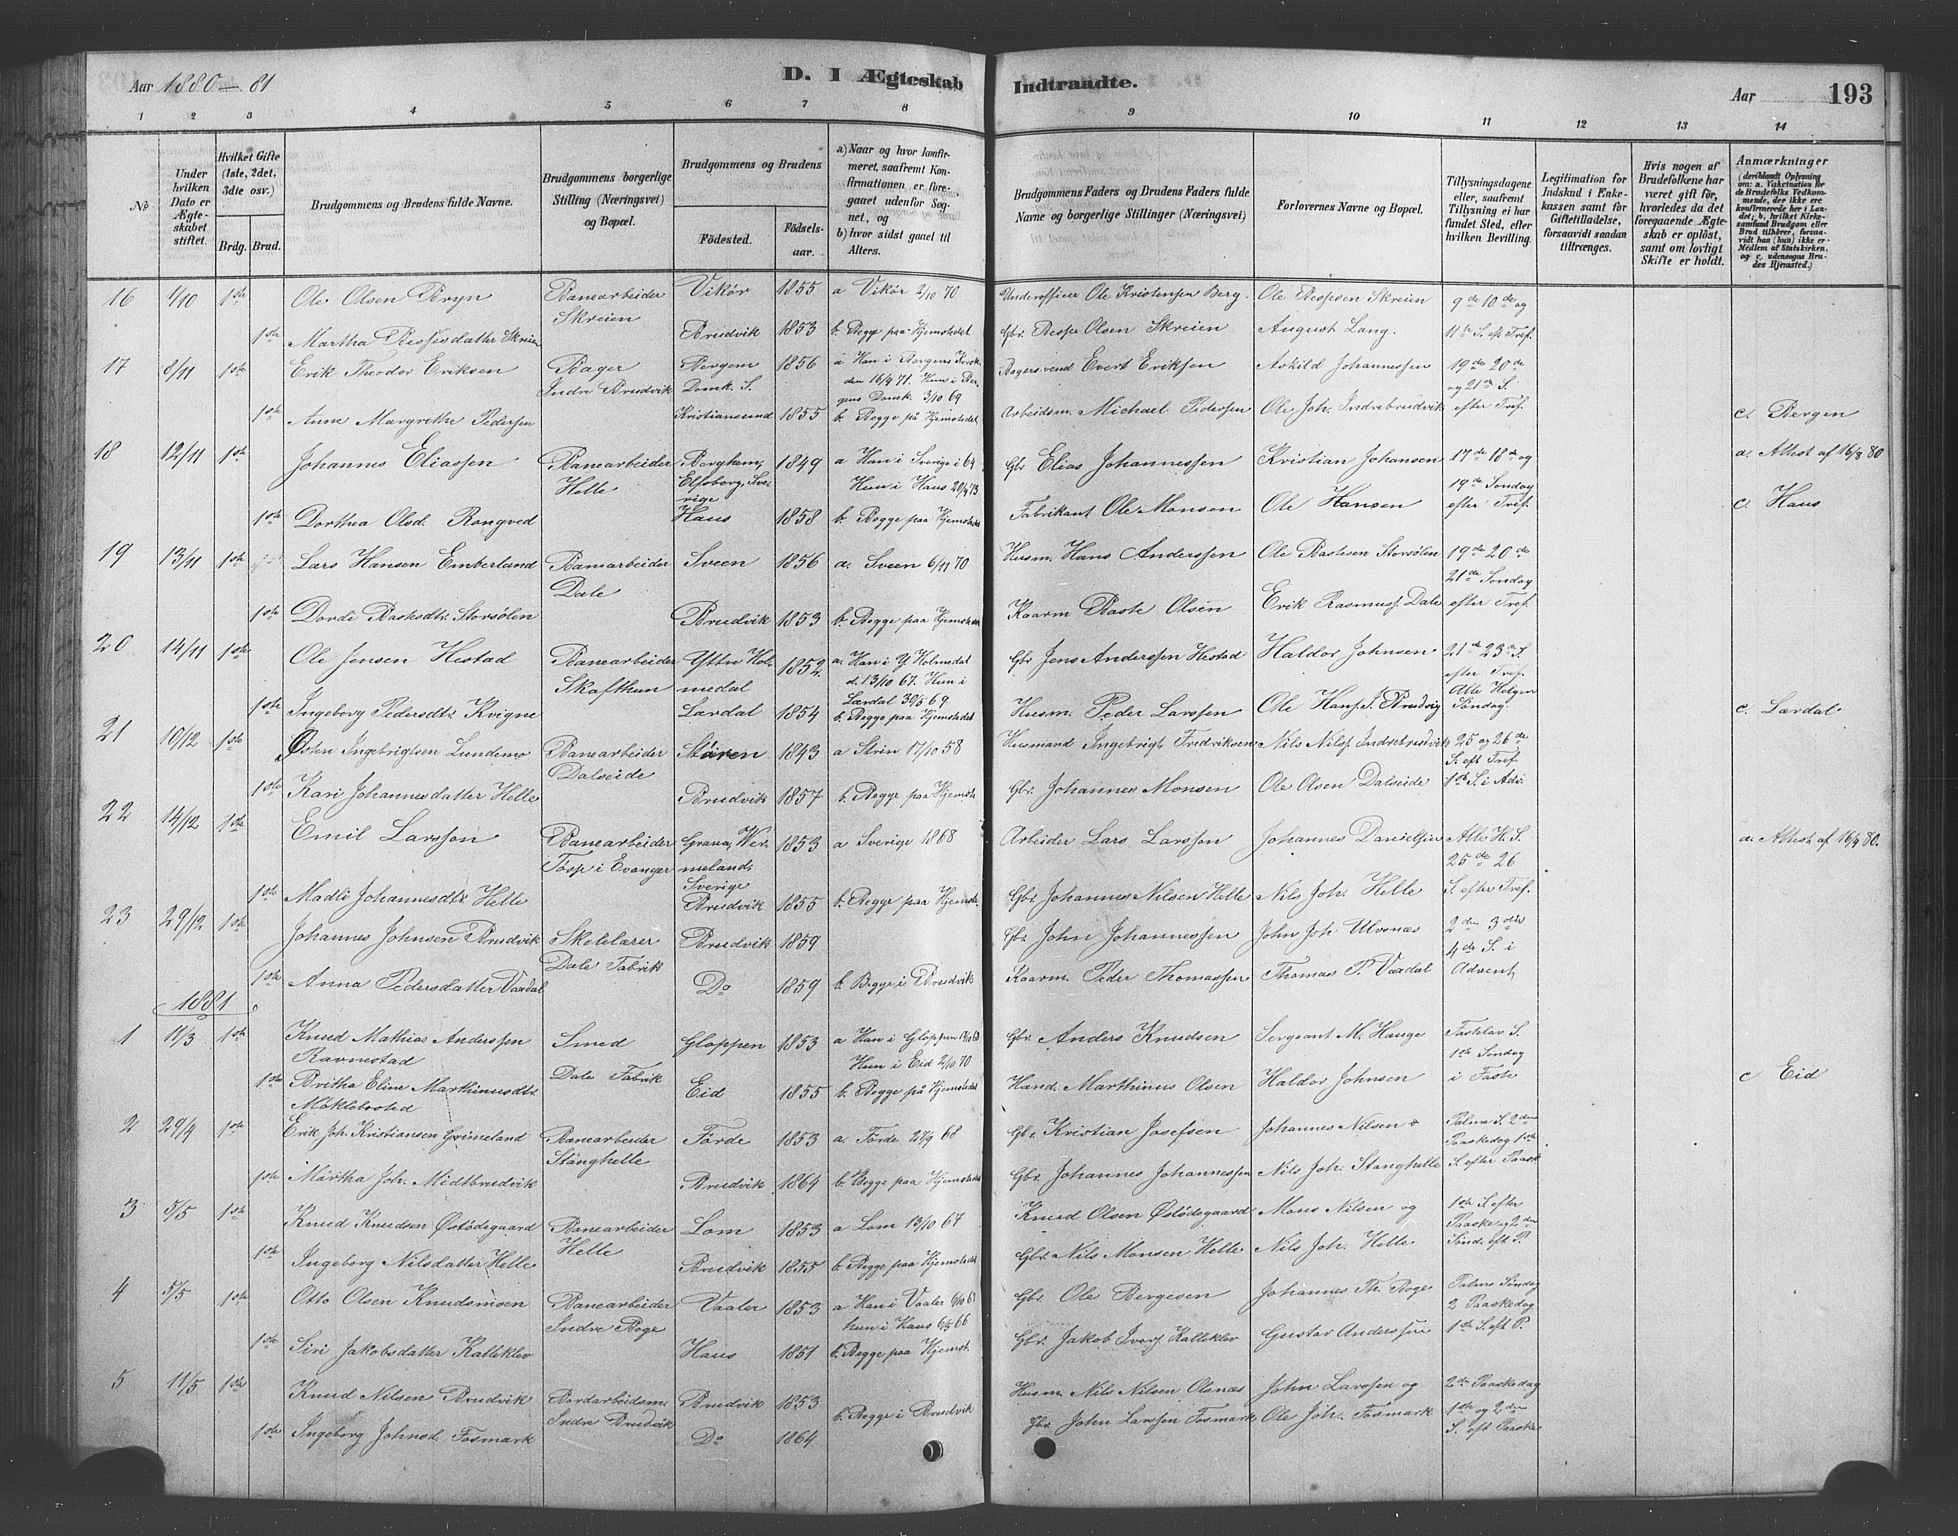 Aar 1880–81
D. I Ægteskab
Indtraadte.
Aar
193
1 2 3 4 5 6 7 8 9 10 11 12 13 14
№
Under hvilken Dato er Ægteskabet stiftet.
Hvilket Gifte (1ste, 2det, 3die osv.)
Brdg. Brud.
Brudgommens og Brudens fulde Navne.
Brudgommens borgerlige Stilling (Næringsvei) og Bopæl.
Brudgommens og Brudens
Fødested.
Fødselsaar.
a) Naar og hvor konfirmeret, saafremt Konfirmationen er foregaaet udenfor Sognet, og
b) hvor sidst gaaet til Alters.
Brudgommens Faders og Brudens Faders fulde Navne og borgerlige Stillinger (Næringsvei)
Forlovernes Navne og Bopæl.
Tillysningsdagene eller, saafremt Tillysning ei har fundet Sted, efter hvilken Bevilling.
Legitimation for Indskud i Enkekassen samt for Giftetilladelse, forsaavidt saadan tiltrænges.
Hvis nogen af Brudefolkene har været gift før, hvorledes da det foregaaende Ægteskab er opløst, samt om lovligt Skifte er holdt.
Anmærkninger (deriblandt Oplysning om: a. Vakcination for de Brudefolks Vedkommende, der ikke ere konfirmerede her i Landet; b. hvilket Kirkesamfund Brudgom eller Brud tilhører, forsaavidt han (hun) ikke er Medlem af Statskirken, og c. udensogns Brudes Hjemsted.)
16 1/10 1ste Ole Olsen Bryn Banearbeider Skreien Vikör 1855 a Vikör 2/10 70 Underofficer Ole Kristensen Berg. Ole Bessesen Skreien 9de 10de og
1ste Martha Bessesdatter Skreien Brudvik 1853 b. Begge paa Hjemstedet Gbr. Besse Olsen Skreien August Lang. 11te S. eft Tref.
17 8/11 1ste Erik Theodor Eriksen Bager Indre Brudvik Bergen Domk. S. 1856 a Han i Bergens Korsk. den 16/4 71. Hun i Bergens Domk. 3/10 69 Bagersvend Evert Eriksen Askild Johannessen 19de 20de og 21de S.
1ste Anne Margrethe Pedersen Kristiansund 1855 b. Begge på Hjemstedet Arbeidsm. Michael Pedersen Ole Joh. Indrebrudvik efter Tref. c. Bergen
18 12/11 1ste Johannes Eliassen Banearbeider Helle Berghem, Elfsborg, Sverige 1849 a Han i Sverige i 64 Hun i Haus 20/4 73 Gbr Elias Johannessen Kristian Johansen 17de 18de og 19de Søndag a. Attest af 16/8 80
1ste Dorthea Olsd. Rongved Haus 1858 b. Begge paa Hjemstedet Fabrikant Ole Monsen Ole Hansen efter Tref. c. Haus
19 13/11 1ste Lars Hansen Emberland Banearbeider Dale Sveen 1856 a. Sveen 6/11 70 Husm. Hans Anderssen Ole Bastesen Storsölen 19de 20de 21de Søndag
1ste Dordi Bastesdtr. Storsölen Brudvik 1853 b. Begge paa Hjemstedet Kaarm Baste Olsen Erik Rasmuss. Dale efter Tref.
20 14/11 1ste Ole Jensen Hestad Banearbeider Skafthun Yttre Holmedal 1852 a. Han i Y. Holmedal d. 13/10 67. Hun i Lærdal 30/5 69 Gbr Jens Anderssen Hestad Haldor Johnsen 21de 23de S. efter Tref.
1ste Ingeborg Pedersdtr. Kvigne Lærdal 1854 b. Begge paa Hjemstedet Husm. Peder Larssen Ole Hanss. Brudvig Alle Helgen Söndag. c. Lærdal
21 10/12 1ste Østen Ingebrigtsen Lundemo Banearbeider Dalseide Stören 1843 a Strin 17/10 58 Husmand Ingebrigt Fredriksen Nils Nilss Indrebrudvik 25 og 26de S. eft Tref.
1ste Kari Johannesdatter Helle Brudvik 1857 b. Begge paa Hjemste Gbr. Johannes Monsen Ole Olsen Dalseide 1ste S. i Adv.
22 14/12 1ste Emil Larsson Banearbeider Tösse i Evanger Grava, Wermeland, Sverige 1853 a Sverige 1868 Arbeider Lars Larsson Johannes Danielsen Alle H. S. 25de 26 a. Attest af 16/9 80.
1ste Madli Johannesdtr. Helle Brudvik 1855 b. Begge paa Hjemste. Gbr. Johannes Nilsen Helle Nils Joh. Helle S. efter Tref.
23 29/12 1ste Johannes Johnsen Brudvik Skolelærer Dale Fabrik Brudvik 1859 Gbr John Johannessen John Joh. Ulvsnæs 2den 3die 4de S. i
1ste Anna Pedersdatter Vaardal Do 1859 b. Begge i Brudvik Kaarm. Peder Thomassen Thomas P. Vardal Advent
1881.
1 11/3 1ste Knud Mathias Anderssen Ravnestad Smed Dale Fabrik Gloppen 1853 a Han i Gloppen Hun i Eid 2/10 70 Gbr. Anders Knudsen Sergeant M. Hauge Fastelav S. 1ste Söndag
1ste Britha Eline Marthinusdtr. Möklebostad Eid 1855 b. Begge på Hjemstedet Hand. Marthinus Olsen Haldor Johnsen i Faste c Eid
2 29/4 1ste Erik Joh. Kristiansen Grimeland Banearbeider Stanghelle Förde 1853 a. Förde 28/9 68 Gbr. Kristian Josefsen Johannes Nilsen o Palme S. 2den Paaskedag 1ste
1ste Martha Joh. Midtbrudvik Brudvik 1864 b. Begge paa Hjemstedet Gbr. Johannes Johannessen Nils Joh. Stanghelle S. efter Paask
3 5/5 1ste Knud Knudsen Östödegaard Banearbeider Helle Lom 1853 a Lom 13/10 67 Knud Olsen Östödegaard Mons Nilsen og 1ste S. efter Paaske og 2den
1ste Ingeborg Nilsdatter Helle Brudvik 1855 b. Begge paa Hjemstedet Gbr. Nils Monsen Helle Nils Joh. Helle Sönd. eft P.
4 5/5 1ste Otto Olsen Knudsmoen Banearbeider Indre Boge Vaaler 1853 a Han i Vaaler hun i Haus 6/5 66 Gbr. Ole Bergesen Johannes Th. Boge Palme Söndag 2 Paaskedag
1ste Siri Jakobsdatter Kalleklev Haus 1851 b. Begge paa Hjemst. Gbr. Jakob Ivars. Kalleklev Gustav Anderssen 1ste S. eft P.
5 11/5 1ste Knud Nilsen Brudvik Bordarbeidsm. Indre Brudvik Brudvik 1853 b. Begge i Brudvik Husm Nils Nilsen Olsnæs John Larssen og 2den Paaskedag 1ste og 2den
1ste Ingeborg Johnsd. Fosmark Do 1864 Gbr John Larssen Fosmark Ole Joh. Fosmark S. eft Paaske